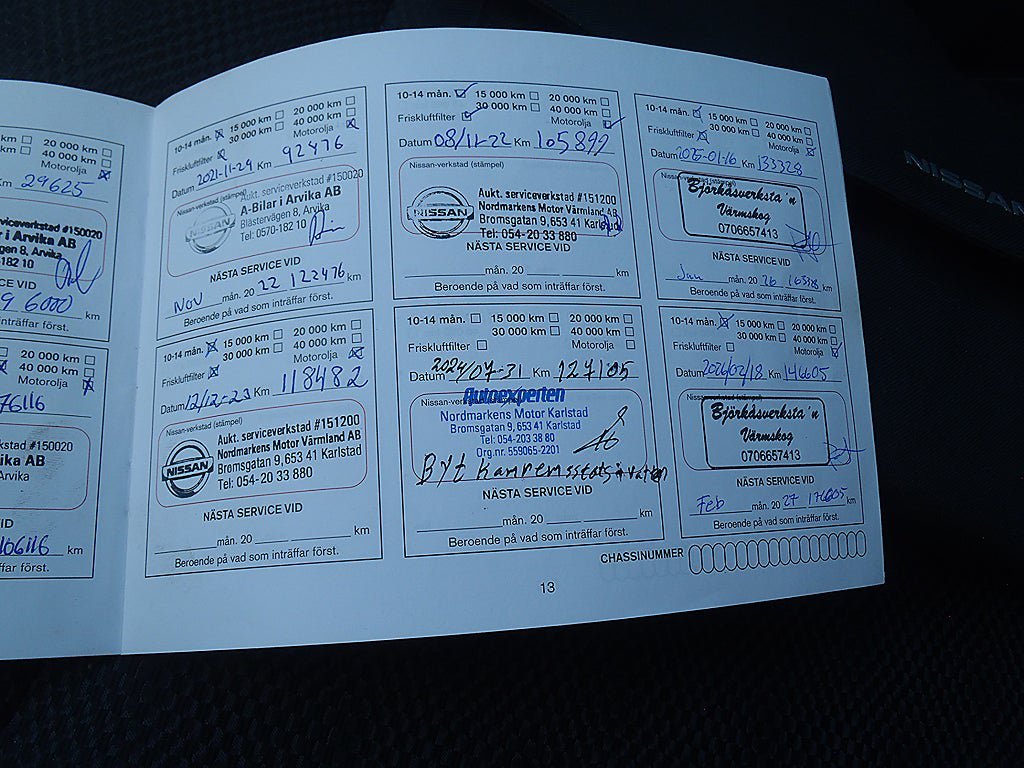 km 20 000 km
km 40 000 km
Motorolja
Km 29625
serviceverkstad #150020
ler i Arvika AB
gen 8, Arvika
182 10
CE VID
96000 km
inträffar först.
20 000 km
40 000 km
Motorolja
76116
kstad #150020
ika AB
Arvika
VID
106116 km
ffar först.
10-14 mån. 15 000 km 20 000 km
30 000 km 40 000 km
Friskluftfilter Motorolja
Datum 2021-11-29 Km 92476
Nissan-verkstad (stämpel)
Aukt. serviceverkstad #150020
A-Bilar i Arvika AB
Blästervägen 8, Arvika
Tel: 0570-182 10
NISSAN
NÄSTA SERVICE VID
Nov mån. 20 22 122476 km
Beroende på vad som inträffar först.
10-14 mån. 15 000 km 20 000 km
30 000 km 40 000 km
Friskluftfilter Motorolja
Datum 08/11-22 Km 105899
Nissan-verkstad (stämpel)
NISSAN
Aukt. serviceverkstad #151200
Nordmarkens Motor Värmland AB
Bromsgatan 9, 653 41 Karlstad
Tel: 054-20 33 880
NÄSTA SERVICE VID
mån. 20 km
Beroende på vad som inträffar först.
10-14 mån. 15 000 km 20 000 km
30 000 km 40 000 km
Friskluftfilter Motorolja
Datum 2025-01-16 Km 133328
Nissan-verkstad (stämpel)
Björkåsverksta´n
Värmskog
0706657413
NÄSTA SERVICE VID
Jan mån. 20 26 163328 km
Beroende på vad som inträffar först.
10-14 mån. 15 000 km 20 000 km
30 000 km 40 000 km
Friskluftfilter Motorolja
Datum 12/12-23 Km 118482
Nissan-verkstad (stämpel)
NISSAN
Aukt. serviceverkstad #151200
Nordmarkens Motor Värmland AB
Bromsgatan 9, 653 41 Karlstad
Tel: 054-20 33 880
NÄSTA SERVICE VID
mån. 20 km
Beroende på vad som inträffar först.
10-14 mån. 15 000 km 20 000 km
30 000 km 40 000 km
Friskluftfilter Motorolja
Datum 2024/07-31 Km 127105
Autoexperten
Nordmarkens Motor Karlstad
Bromsgatan 9, 653 41 Karlstad
Tel: 054-203 38 80
Org.nr. 559065-2201
Byt kamremssats + vatten
NÄSTA SERVICE VID
mån. 20 km
Beroende på vad som inträffar först.
10-14 mån. 15 000 km 20 000 km
30 000 km 40 000 km
Friskluftfilter Motorolja
Datum 2026/02/18 Km 146605
Björkåsverksta´n
Värmskog
0706657413
NÄSTA SERVICE VID
Feb mån. 20 27 176605 km
Beroende på vad som inträffar först.
CHASSINUMMER
13
NISSAN